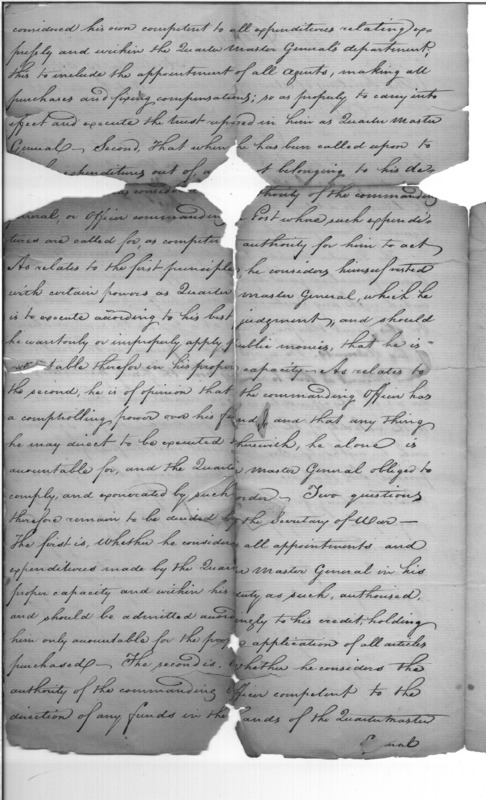 considered his own competent to all expenditures relating ex-
presly and within the Quarter Master General's department,
this to include the appointment of all agents, making all
purchases and fixing compensations; so as properly to carry into
effect and execute the trust reposed in him as Quarter Master
General — Second. That when he has been called upon to
expenditures out of, a belonging to his de
as consider thority of the commanding
General, or Officer commanding a Post where such expendi-
tures are called for, as competent authority for him to act
As relates to the first principle, he considers himself vested
with certain powers as Quarter Master General, which he
is to execute according to his best judgment, and should
he wantonly or improperly apply public monies, that he is
table therefor in his proper capacity — As relates to
the second, he is of opinion that the commanding Officer has
a comptrolling power over his funds, and that any thing
he may direct to be executed therewith, he alone is
accountable for, and the Quarter Master General obliged to
comply, and exonerated by such order — Two questions
therefore remain to be decided by the Secretary of War —
The first is, Whether he considers all appointments and
expenditures made by the Quarter Master General in his
proper capacity and within his duty as such, authorised
and should be admitted accordingly to his credit, holding
him only accountable for the proper application of all articles
purchased — The second is. Whether he considers the
authority of the commanding Officer competent to the
direction of any funds in the hands of the Quarter Master
General